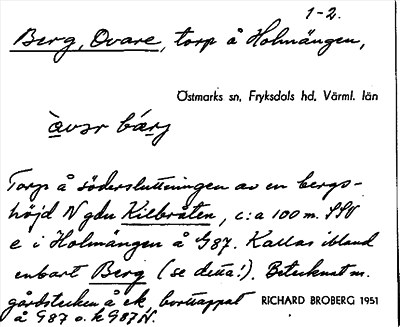 1-2.
Berg, Ovare, torp å Holmängen,
Östmarks sn, Fryksdals hd, Värml. län
àvər bárj
Torp å södersluttningen av en bergs-
höjd N gdn Kilbråten, c:a 100 m. SSV
e i Holmängen å G87. Kallas ibland
enbart Berg (se detta!). Betecknat m.
gårdstecken å ek. borttappat
å G87 o. k G87N.
RICHARD BROBERG 1951